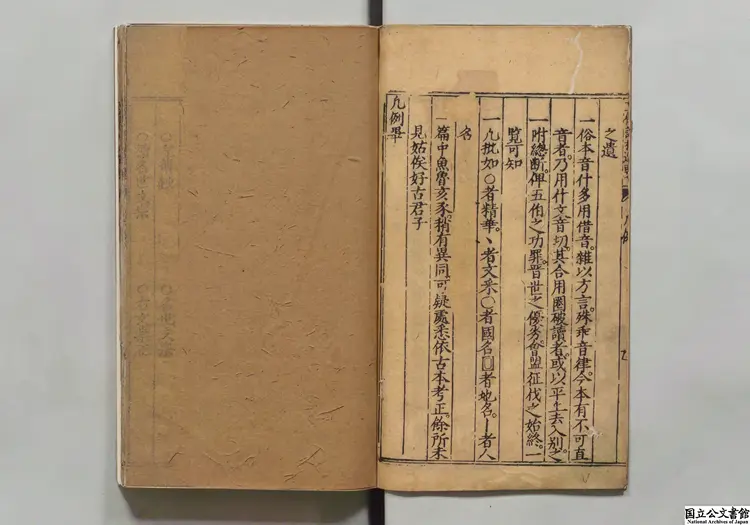 之遺
一俗本音什多用借音雜以方言殊乖音律今本有不可直
音者乃用什文音切其合用圏破讀者或以平上去入別之
一附總断俾五伯之功罪晋世之優劣會盟征伐之始終一
覧可知
一凡批如○者精華、者文采○者國名▯者地名｜者人
名
一篇中魚魯亥豕稍有異同可疑處悉依古本考正餘所未
見姑俟好古君子
凡例畢
国立公文書館
National Archives of Japan